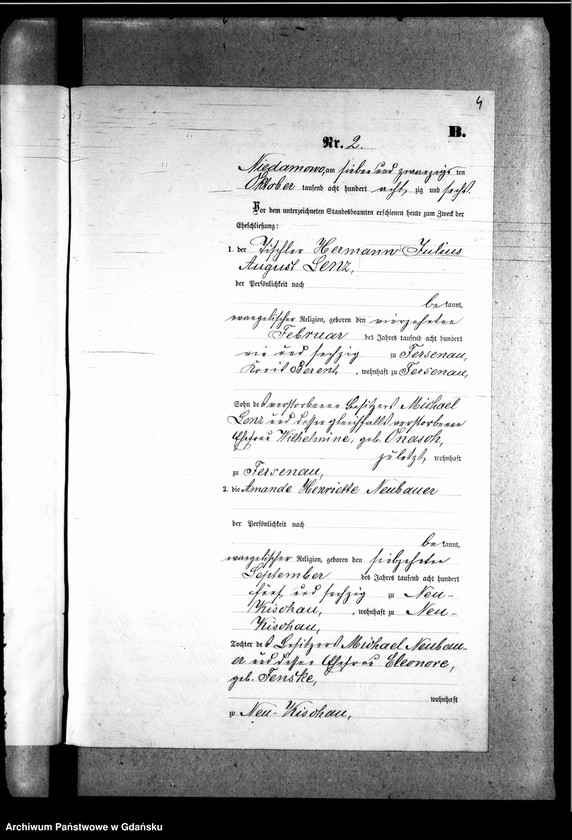 4
B.
Nr. 2.
Niedamowo, am sieben und zwanzigs ten
Oktober tausend acht hundert acht zig und sechs.
Vor dem unterzeichneten Standesbeamten erschienen heute zum Zweck der
Eheschließung:
1. der Tischler Hermann Julius
August Lenz,
der Persönlichkeit nach
be kannt,
evangelischer Religion, geboren den vierzehnten
Februar des Jahres tausend acht hundert
vier und sechzig zu Fersenau,
Kreis Berent, wohnhaft zu Fersenau,
Sohn des verstorbenen Besitzers Michael
Lenz und dessen gleichfalls verstorbenen
Ehefrau Wilhelmine, geb. Onasch,
zuletzt wohnhaft
zu Fersenau,
2. die Amande Henriette Neubauer
der Persönlichkeit nach
be kannt,
evangelischer Religion, geboren den siebzehnten
September des Jahres tausend acht hundert
fünf und sechzig zu Neu-
Kischau, , wohnhaft zu Neu-
Kischau,
Tochter des Besitzers Michael Neubau-
er und dessen Ehefrau Eleonore,
geb. Fenske,
wohnhaft
zu Neu-Kischau,
Archiwum Państwowe w Gdańsku